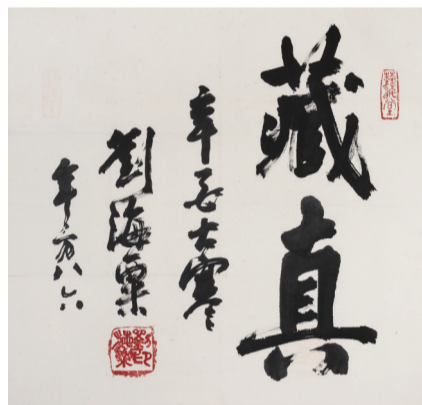 藏真
辛酉大寒
劉海粟
年方八六